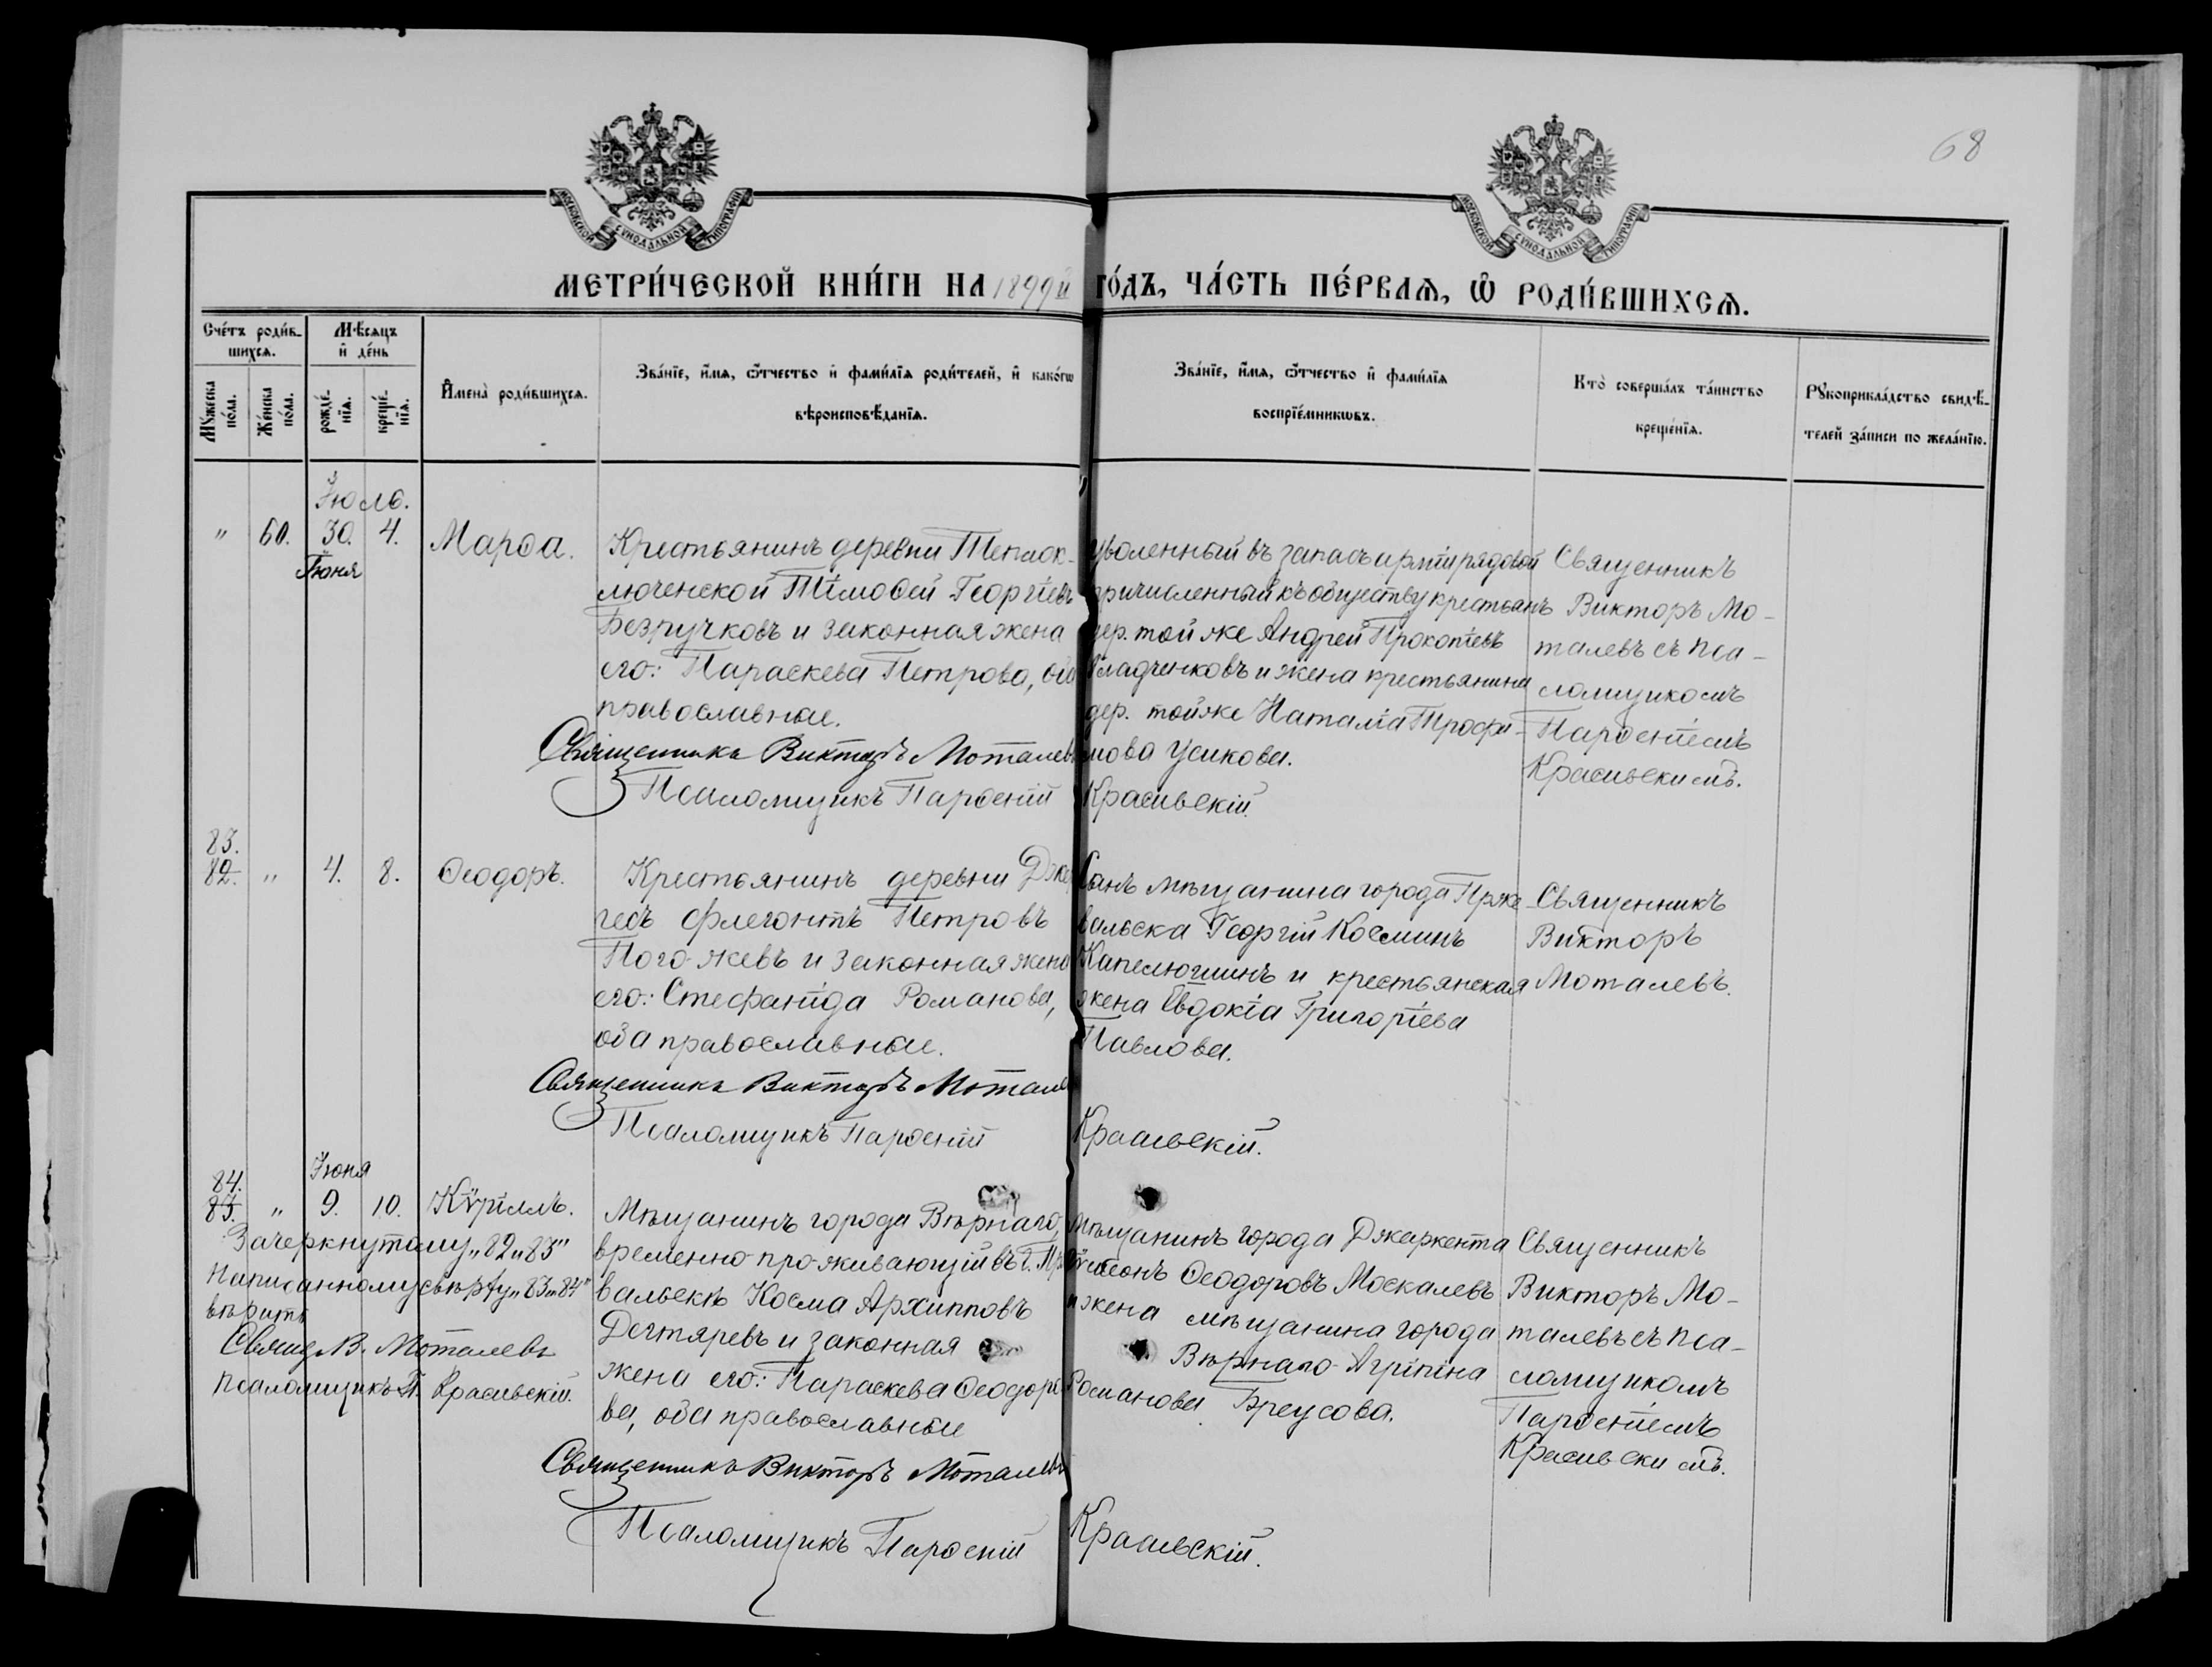 68
МОСКОВСКОЙ СѴНОДАЛЬНОЙ ТИПОГРАФІИ
МОСКОВСКОЙ СѴНОДАЛЬНОЙ ТИПОГРАФІИ
МЕТРИ́ЧЕСКОЙ КНИ́ГИ НА 1899й ГО́ДЪ, ЧА́СТЬ ПЕ́РВАѦ, Ѡ҆ РОДИ́ВШИХСѦ.
Сче́тъ роди́в-
шихсѧ.
Мꙋ́жеска по́ла.
Же́нска по́ла.
Мѣ́сѧцъ
и҆ де́нь
рожде́-
нїѧ.
креще́-
нїѧ.
И҆мена̀ роди́вшихсѧ.
Зва́нїе, и҆́мѧ, ѻ҆́тчество и҆ фами́лїѧ роди́телей, и҆ како́гѡ
вѣроисповѣ́данїѧ.
Зва́нїе, и҆́мѧ, ѻ҆́тчество и҆ фами́лїѧ
воспрїе́мникѡвъ.
Кто̀ соверша́лъ та́инство
креще́нїѧ.
Рꙋкоприкла́дство свидѣ́-
телей за́писи по жела́нїю.
Іюль.
" 60. 30. 4. Марѳа.
Іюня
Крестьянинъ деревни Теплок-
люченской Тімоѳей Георгіевъ
Безручковъ и законная жена
его: Параскева Петрова, оба
православные.
Священникъ Викторъ Моталевъ
Псаломщикъ Парѳеній Красивскій.
Уволенный въ запасъ арміи рядовой
причисленный къ обществу крестьянъ
дер. той же Андрей Прокопіевъ
Гладченковъ и жена крестьянина
дер. той же Наталія Трофи-
мова Усикова.
Священникъ
Викторъ Мо-
талевъ съ пса-
ломщикомъ
Парѳеніемъ
Красивскимъ.
83.
82. " 4. 8. Ѳеодоръ.
Крестьянинъ деревни Дже
гесъ Флегонтъ Петровъ
Погожевъ и законная жена
его: Стефанида Романова,
оба православные.
Священникъ Викторъ Моталевъ
Псаломщикъ Парѳеній Красивскій.
Сынъ мѣщанина города Прже-
вальска Георгій Косминъ
Капелюшинъ и крестьянская
жена Евдокія Григоріева
Павлова.
Священникъ
Викторъ
Моталевъ.
84. Іюня
83. " 9. 10. Кѵриллъ.
Зачеркнутому „82„83"
Написанному сверху „83„84"
вѣрить
Свящ. В. Моталевъ
Псаломщикъ П. Красивскій.
Мѣщанинъ города Вѣрнаго,
временно проживающій въ г. Прже
вальскѣ Косма Архипповъ
Дегтяревъ и законная
жена его: Параскева Ѳеодоро
ва, оба православные
Священникъ Викторъ Моталевъ
Псаломщикъ Парѳеній Красивскій.
Мѣщанинъ города Джаркента
Ѳеодоровъ Москалевъ
и жена мѣщанина города
Вѣрнаго Агріпіна
Романова Бреусова.
Священникъ
Викторъ Мо-
талевъ съ пса-
ломщикомъ
Парѳеніемъ
Красивскимъ.